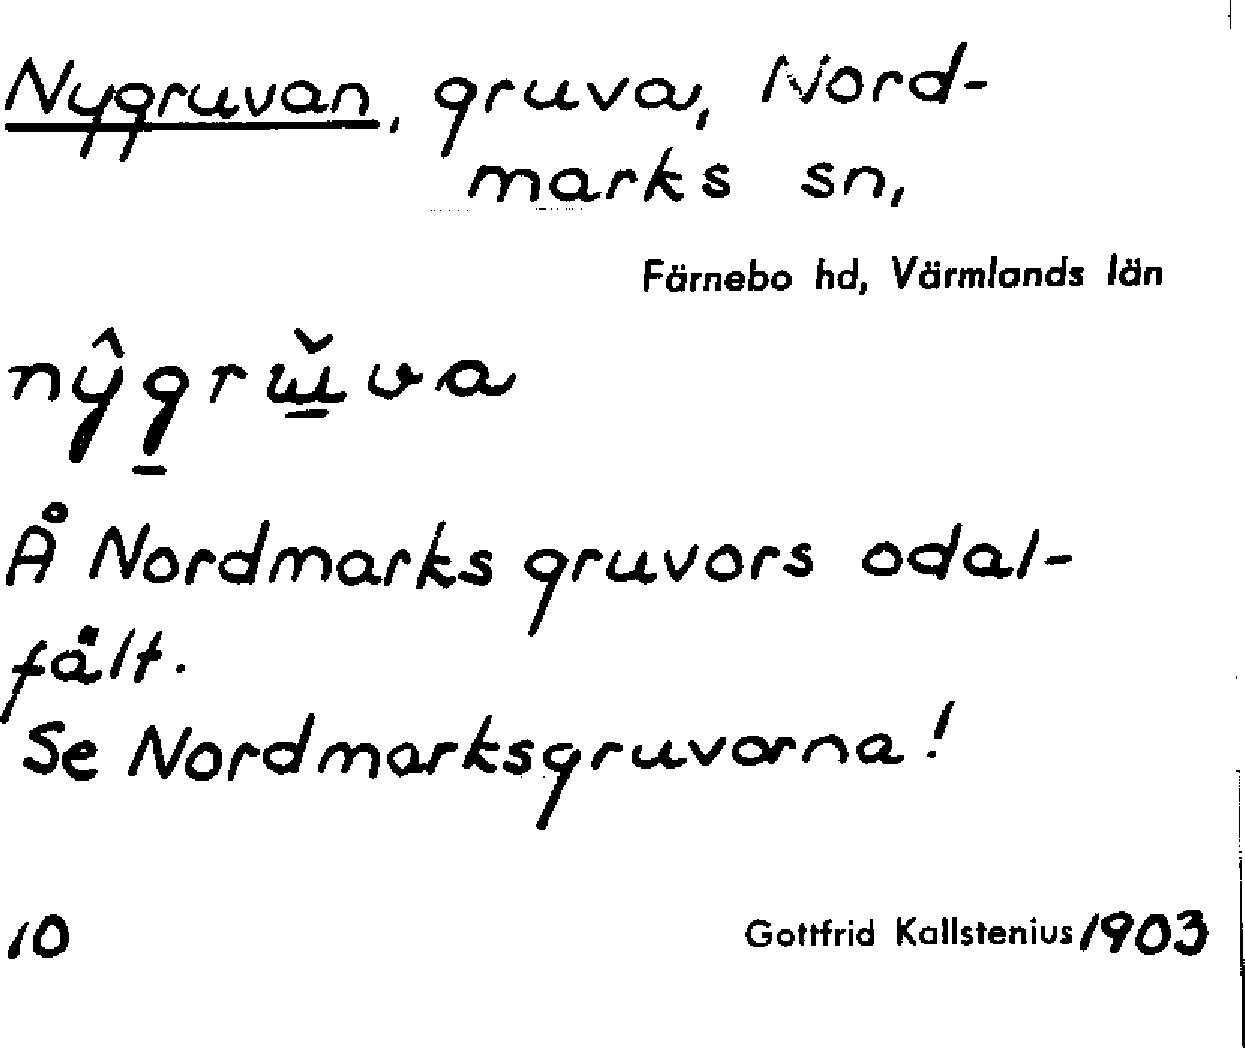 Nygruvan, gruva, Nord-
marks sn,
Färnebo hd, Värmlands län
nŷg̲rǔ̲va
Å Nordmarks gruvors odal-
fält.
Se Nordmarksgruvorna!
10 Gottfrid Kallstenius 1903